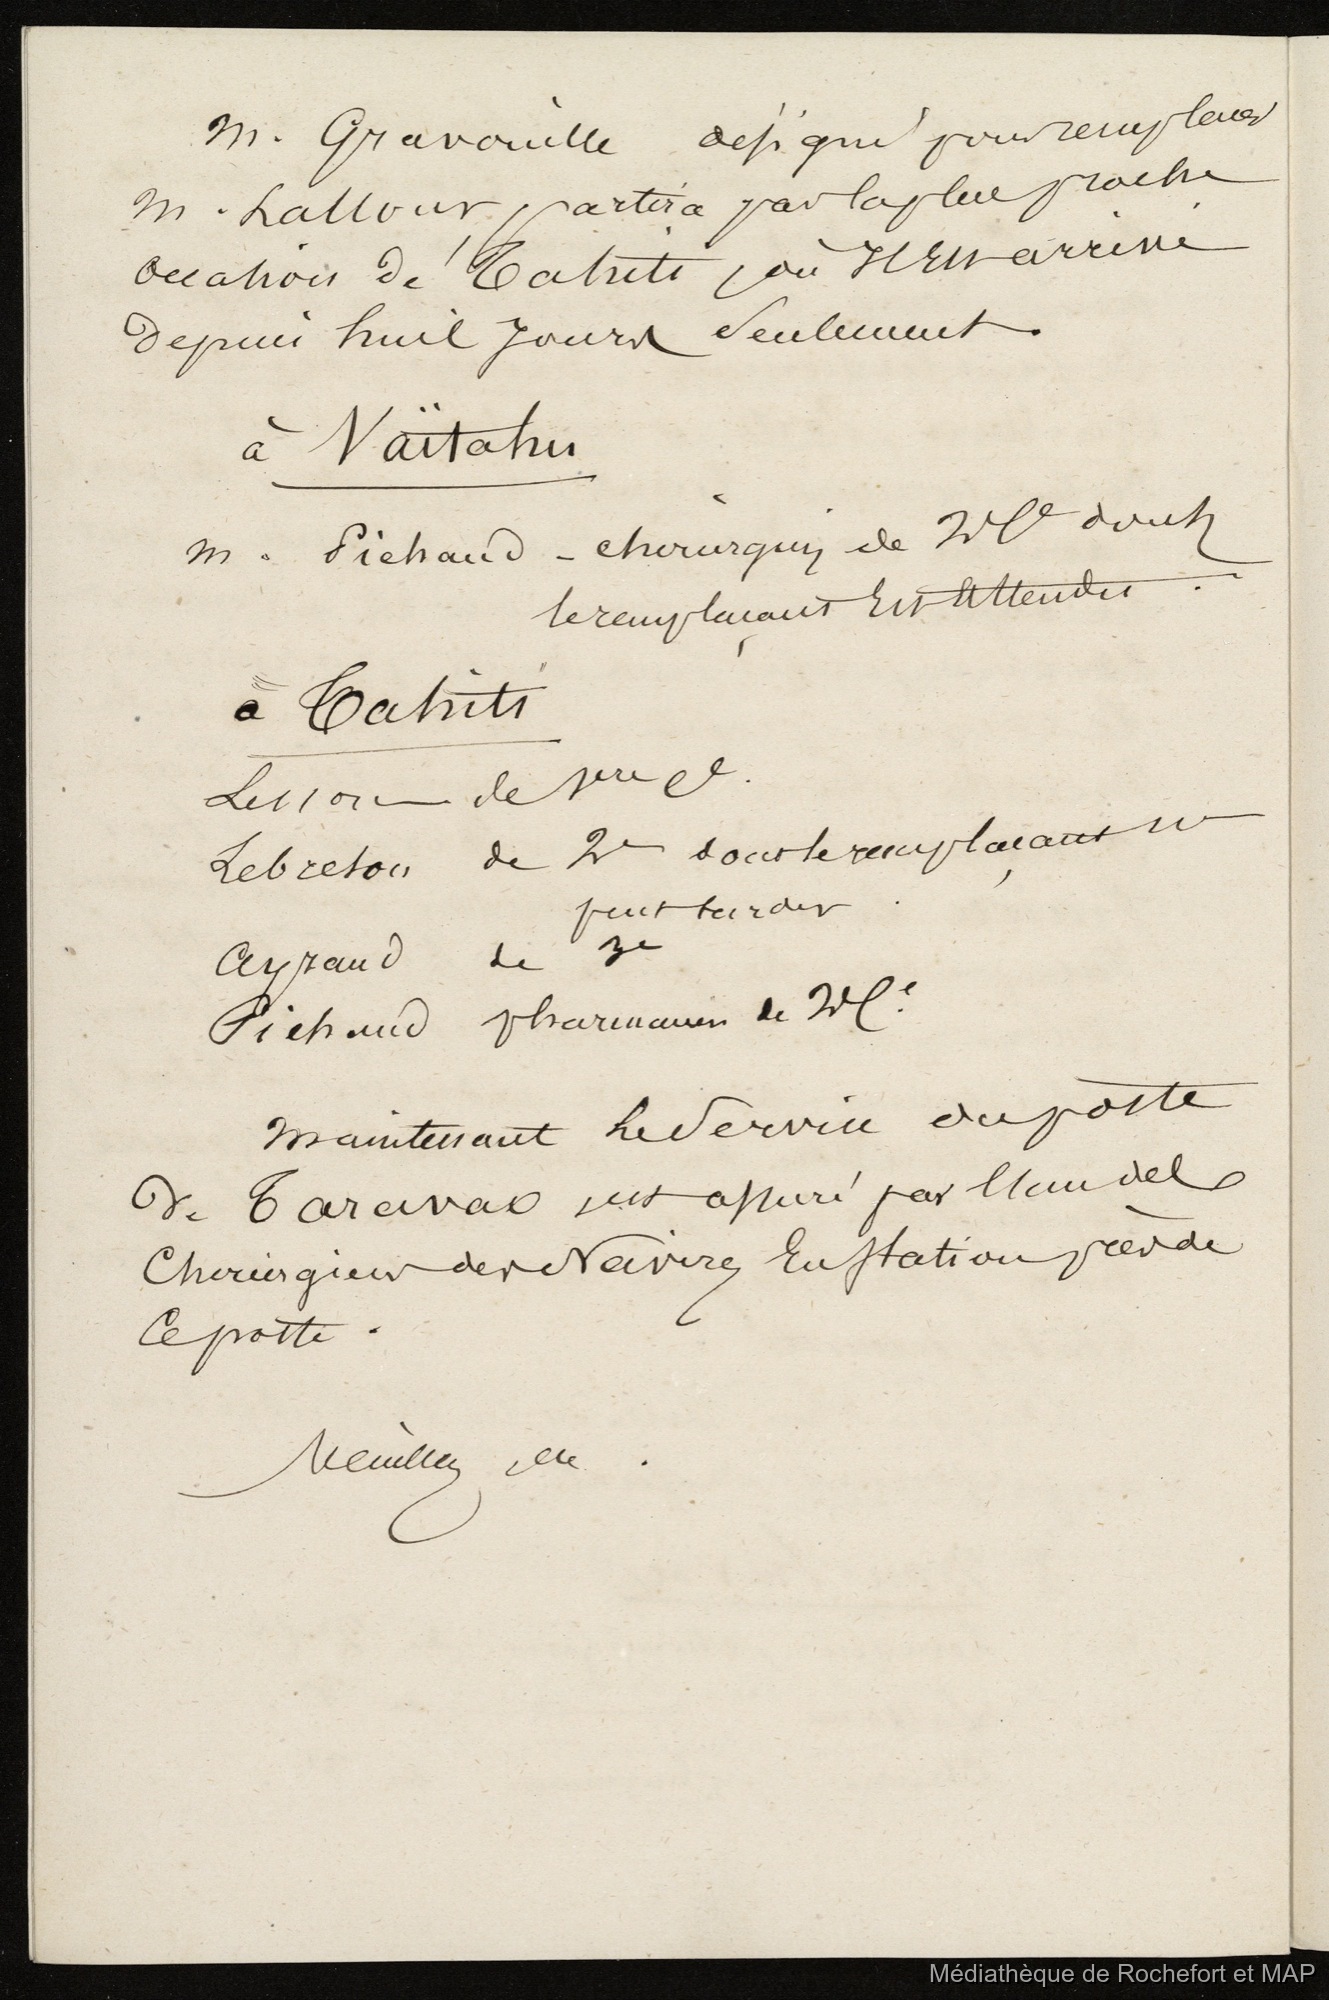 M. Gravouille désigné pour remplacer
M. Lallour, partira par la plus proche
occasion de Tahiti, où Il Est arrivé
depuis huit Jours seulement.
à Vaïtahu
M. Pichaud - chirurgien de 2e Cl.e dont
le remplaçant Est Attendu.
à Tahiti
Lesson de 1ere Cl.
Lebreton de 2e dont le remplaçant ne
peut tarder.
Ayraud de 3e
Pichaud pharmacien de 2e Cl.e
Maintenant Le Service du poste
de Taravao est assuré par l'un des
Chirurgiens des Navires En station près de
Ce poste.
Veuillez, etc.
Médiathèque de Rochefort et MAP